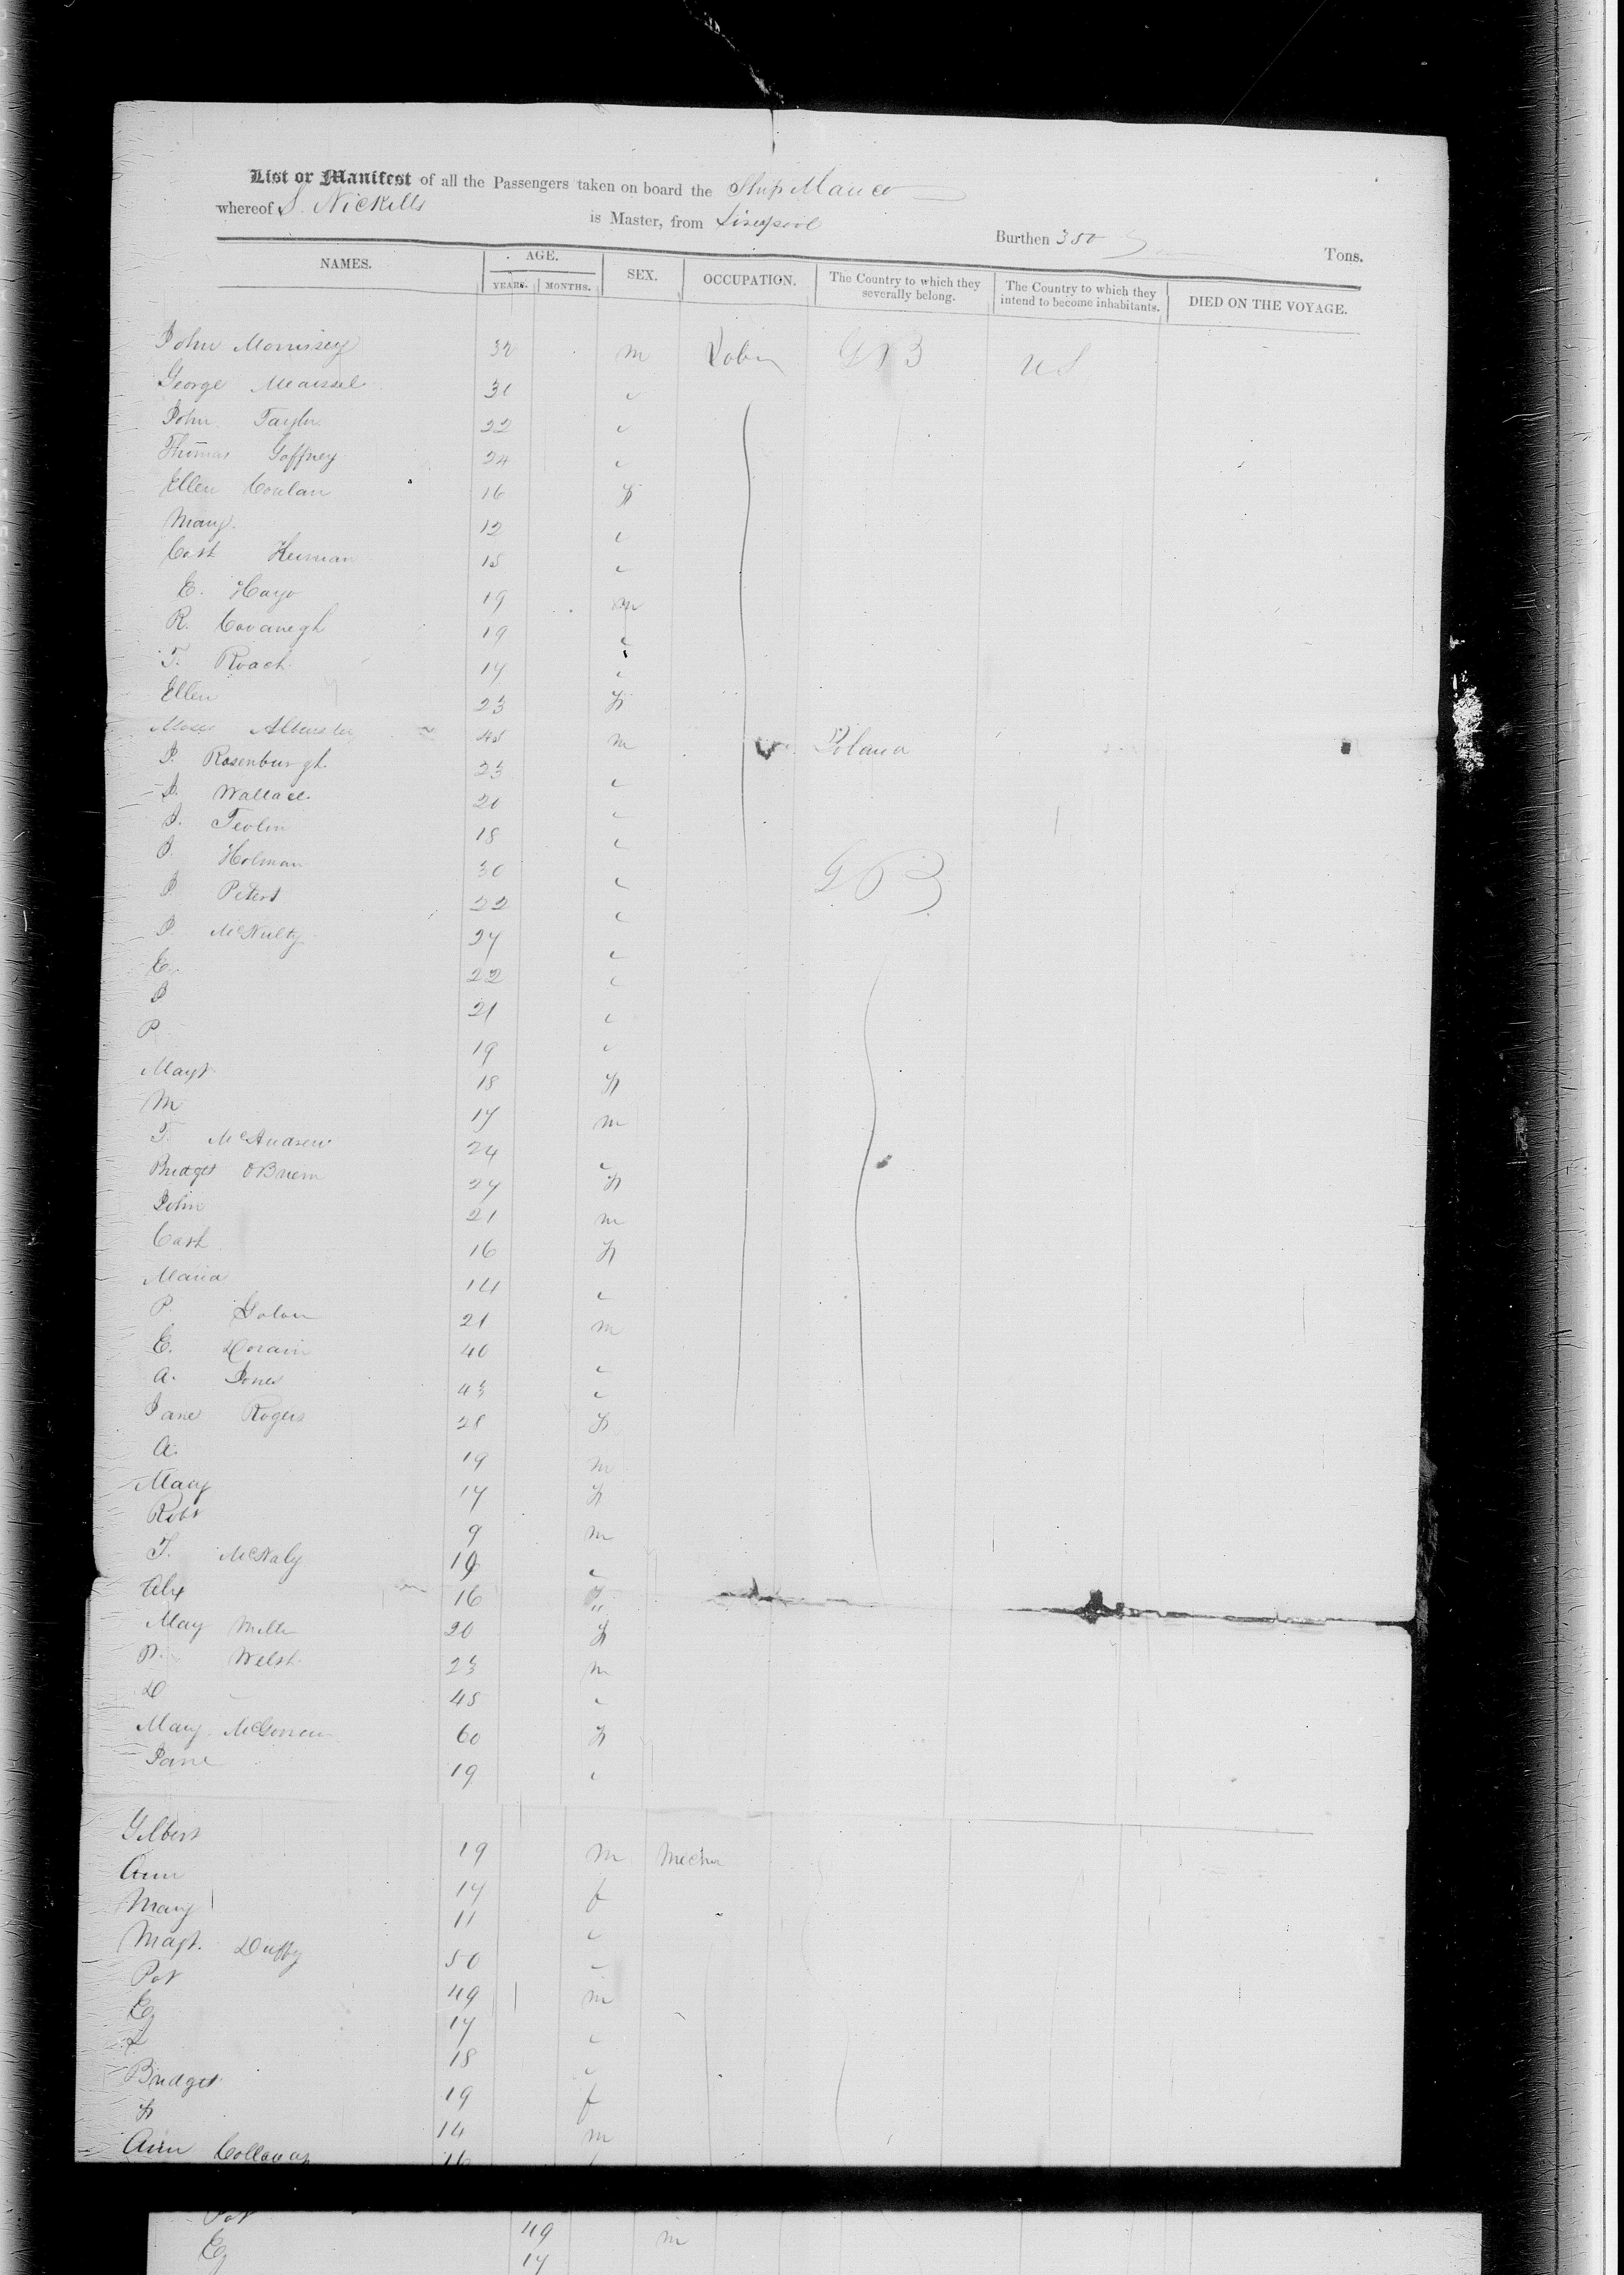 List or Manifest of all the Passengers taken on board the Ship
whereof S. Nickells is Master, from Liverpool Burthen 350 Tons.
NAMES. AGE. YEARS. MONTHS. SEX. OCCUPATION. The Country to which they severally belong. The Country to which they intend to become inhabitants. DIED ON THE VOYAGE.
John Morrisey 32 m GB US
George 31 "
John Taylor 22 "
Thomas Gaffney 24 "
Ellen Conlan 16 F
Mary 12 "
Cath 18 "
E. Hayo 19 m
R. Cavanegh 19 "
T. Roach 17 "
Ellen 23 F
Moses m Poland
P. Rosenburgh 23 "
J. Wallace 20 "
J. 18 "
J. Holman 30 " GB
J Peters 22 "
J McNulty 27 "
E. 22 "
J 21 "
P 19 "
Magt 18 F
M 17 m
T. McAndrew 24 "
Bridget OBriern 27 F
John 21 m
Cath 16 F
Maria 14 "
P. 21 m
E. 40 "
A. Jones 43 "
Jane Rogers 28 F
A. 19 m
Mary 17 F
Robt 9 m
T. McNaly 19 "
Alex 16 "
May 20 F
P. Welsh 23 m
D 45 "
Mary 60 F
Jane 19 "
Gilbert 19 m
Ann 17 f
Mary 11 "
Magt. Duffy 50 "
Pat 49 m
E 17 "
L 18 "
Bridget 19 f
F 14 m
Ann 16
Pat 49 m
E 17